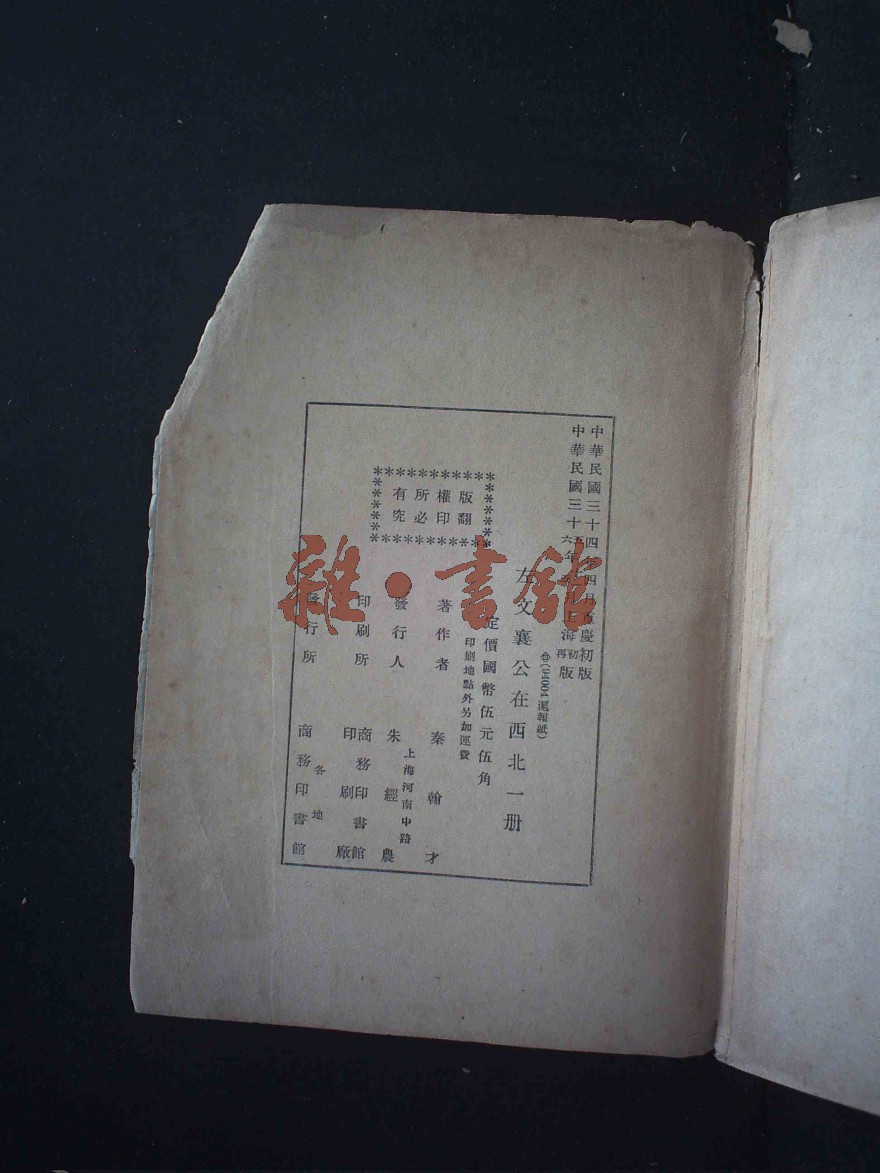 中華民國三十四年四月重慶初版
中華民國三十五六年月上海初再版
(94004滬報紙)
左文襄公在西北一册
定價國幣伍元伍角
印刷地點外另加運費
版權所有
翻印必究
著作者 秦翰才
上海河南中路
發行人 朱經農
印刷所 商務印書館
印刷廠
各地
發行所 商務印書館
雜·書館